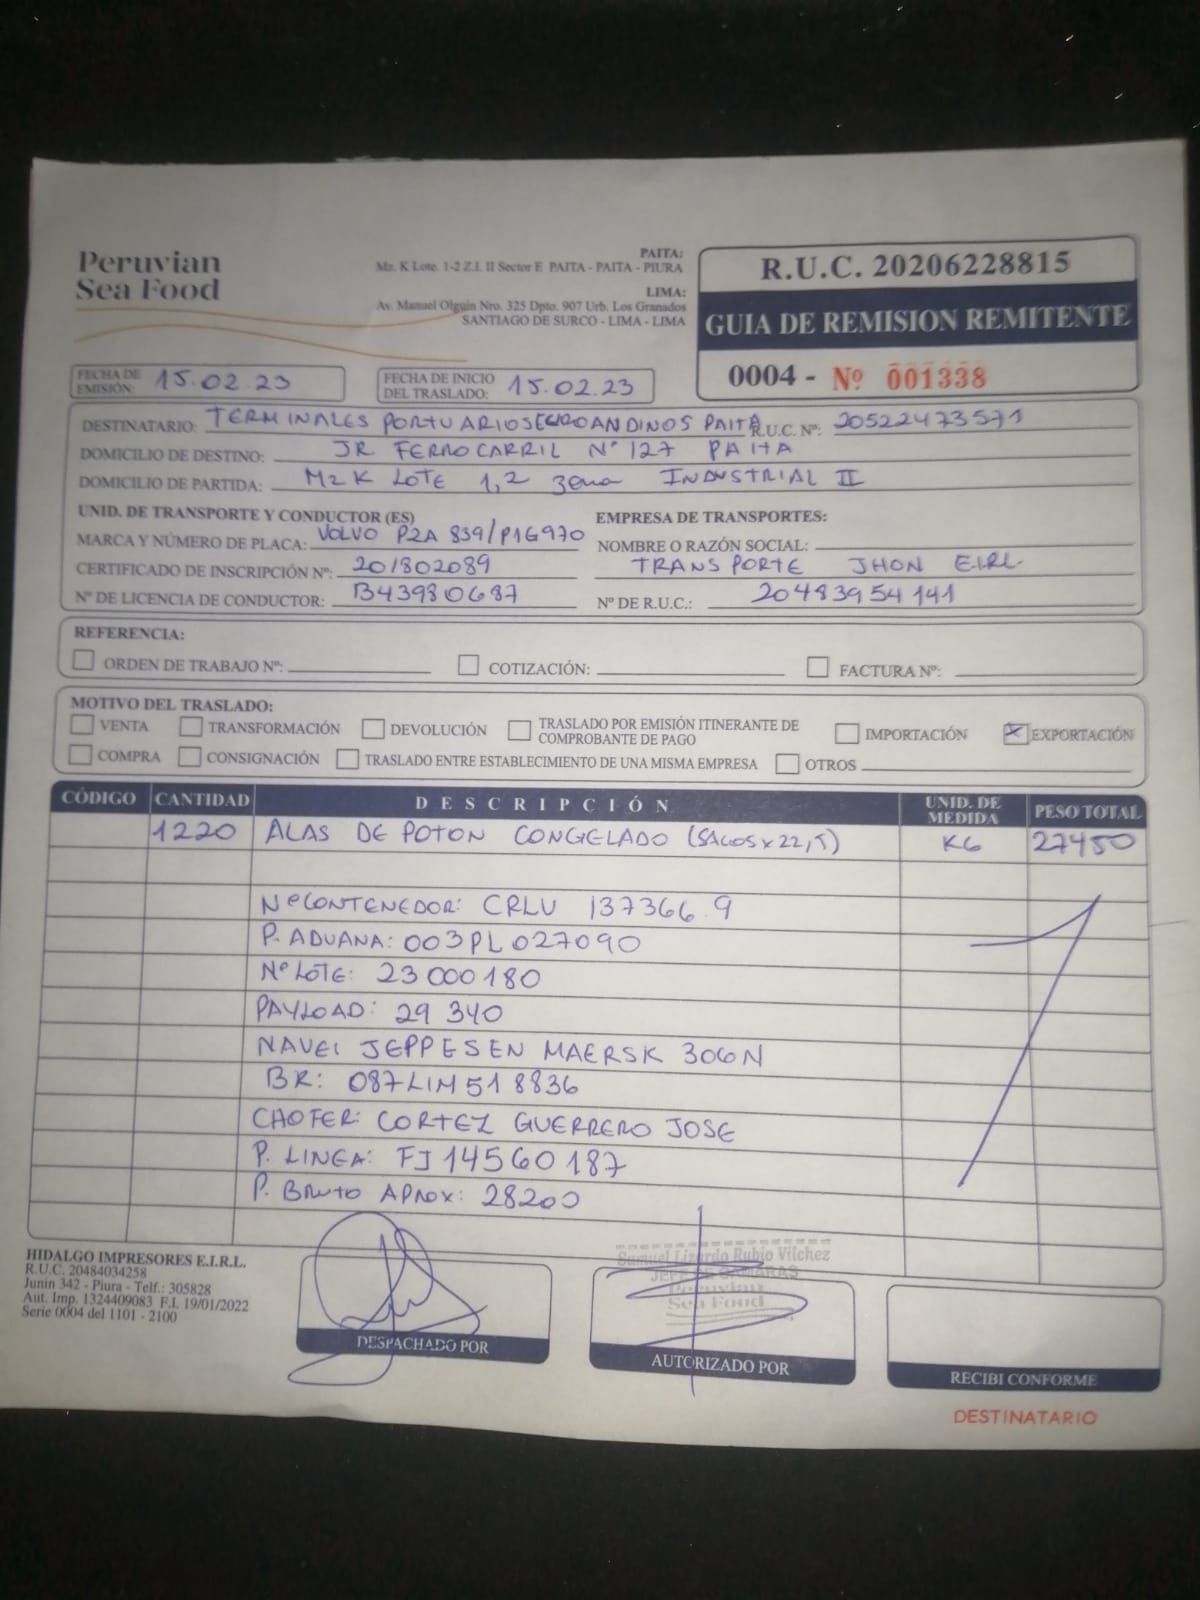 Peruvian
Sea Food
PAITA:
Mz. K Lote. 1-2 Z.I. II Sector E PAITA - PAITA - PIURA
LIMA:
Av. Manuel Olguin Nro. 325 Dpto. 907 Urb. Los Granados
SANTIAGO DE SURCO - LIMA - LIMA
R.U.C. 20206228815
GUIA DE REMISION REMITENTE
0004 - Nº 001338
FECHA DE EMISIÓN: 15.02.23
FECHA DE INICIO DEL TRASLADO: 15.02.23
DESTINATARIO: TERMINALES PORTUARIOS EUROANDINOS PAITA R.U.C. Nº: 20522473571
DOMICILIO DE DESTINO: JR FERROCARRIL Nº 127 PAITA
DOMICILIO DE PARTIDA: Mz K LOTE 1,2 zona INDUSTRIAL II
UNID. DE TRANSPORTE Y CONDUCTOR (ES)
MARCA Y NÚMERO DE PLACA: VOLVO P2A 839/P1G970
CERTIFICADO DE INSCRIPCIÓN Nº: 201802089
Nº DE LICENCIA DE CONDUCTOR: B43980687
EMPRESA DE TRANSPORTES:
NOMBRE O RAZÓN SOCIAL:
TRANSPORTE JHON E.I.R.L.
Nº DE R.U.C.: 20483954141
REFERENCIA:
ORDEN DE TRABAJO Nº: COTIZACIÓN: FACTURA Nº:
MOTIVO DEL TRASLADO:
VENTA TRANSFORMACIÓN DEVOLUCIÓN TRASLADO POR EMISIÓN ITINERANTE DE COMPROBANTE DE PAGO IMPORTACIÓN X EXPORTACIÓN
COMPRA CONSIGNACIÓN TRASLADO ENTRE ESTABLECIMIENTO DE UNA MISMA EMPRESA OTROS
CÓDIGO CANTIDAD DESCRIPCIÓN UNID. DE MEDIDA PESO TOTAL
1220 ALAS DE POTON CONGELADO (SACOS x 22,5) KG 27450
Nº CONTENEDOR: CRLU 137366.9
P. ADUANA: 003PL027090
Nº LOTE: 23000180
PAYLOAD: 29 340
NAVE: JEPPESEN MAERSK 306N
BK: 087LIM518836
CHOFER: CORTEZ GUERRERO JOSE
P. LINEA: FJ14560187
P. Bruto Aprox: 28200
HIDALGO IMPRESORES E.I.R.L.
R.U.C. 20484034258
Junin 342 - Piura - Telf.: 305828
Aut. Imp. 1324409083 F.I. 19/01/2022
Serie 0004 del 1101 - 2100
DESPACHADO POR
Samuel Lizardo Rubio Vilchez
JEFE DE CAMARAS
Peruvian
Sea Food
AUTORIZADO POR
RECIBI CONFORME
DESTINATARIO